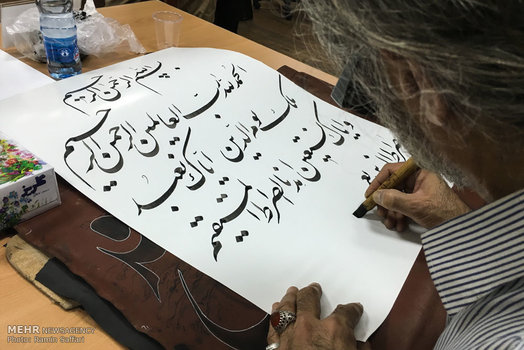 بسم الله الرحمن الرحیم
الحمد لله رب العالمین الرحمن الرحیم
مالک یوم الدین ایاک نعبد
و ایاک نستعین اهدنا الصراط المستقیم
MEHR NEWSAGENCY
Photo: Ramin Saffari